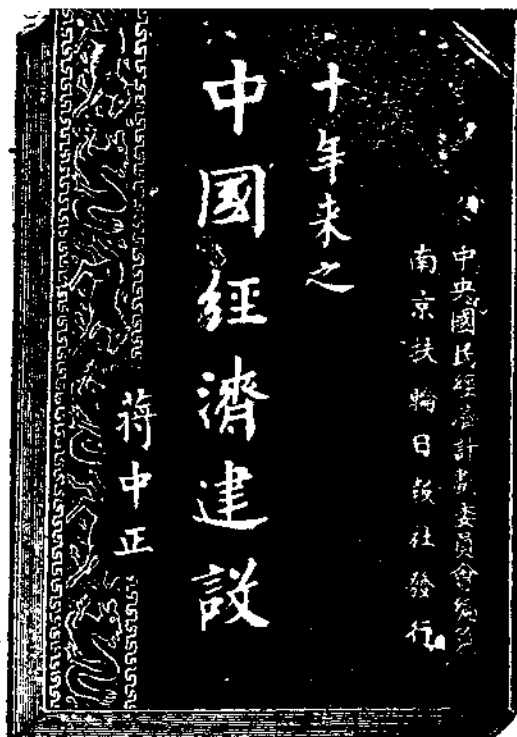 中央國民經濟計劃委員會編纂
南京扶輪日報社發行
十年来之
中國經濟建設
蔣中正